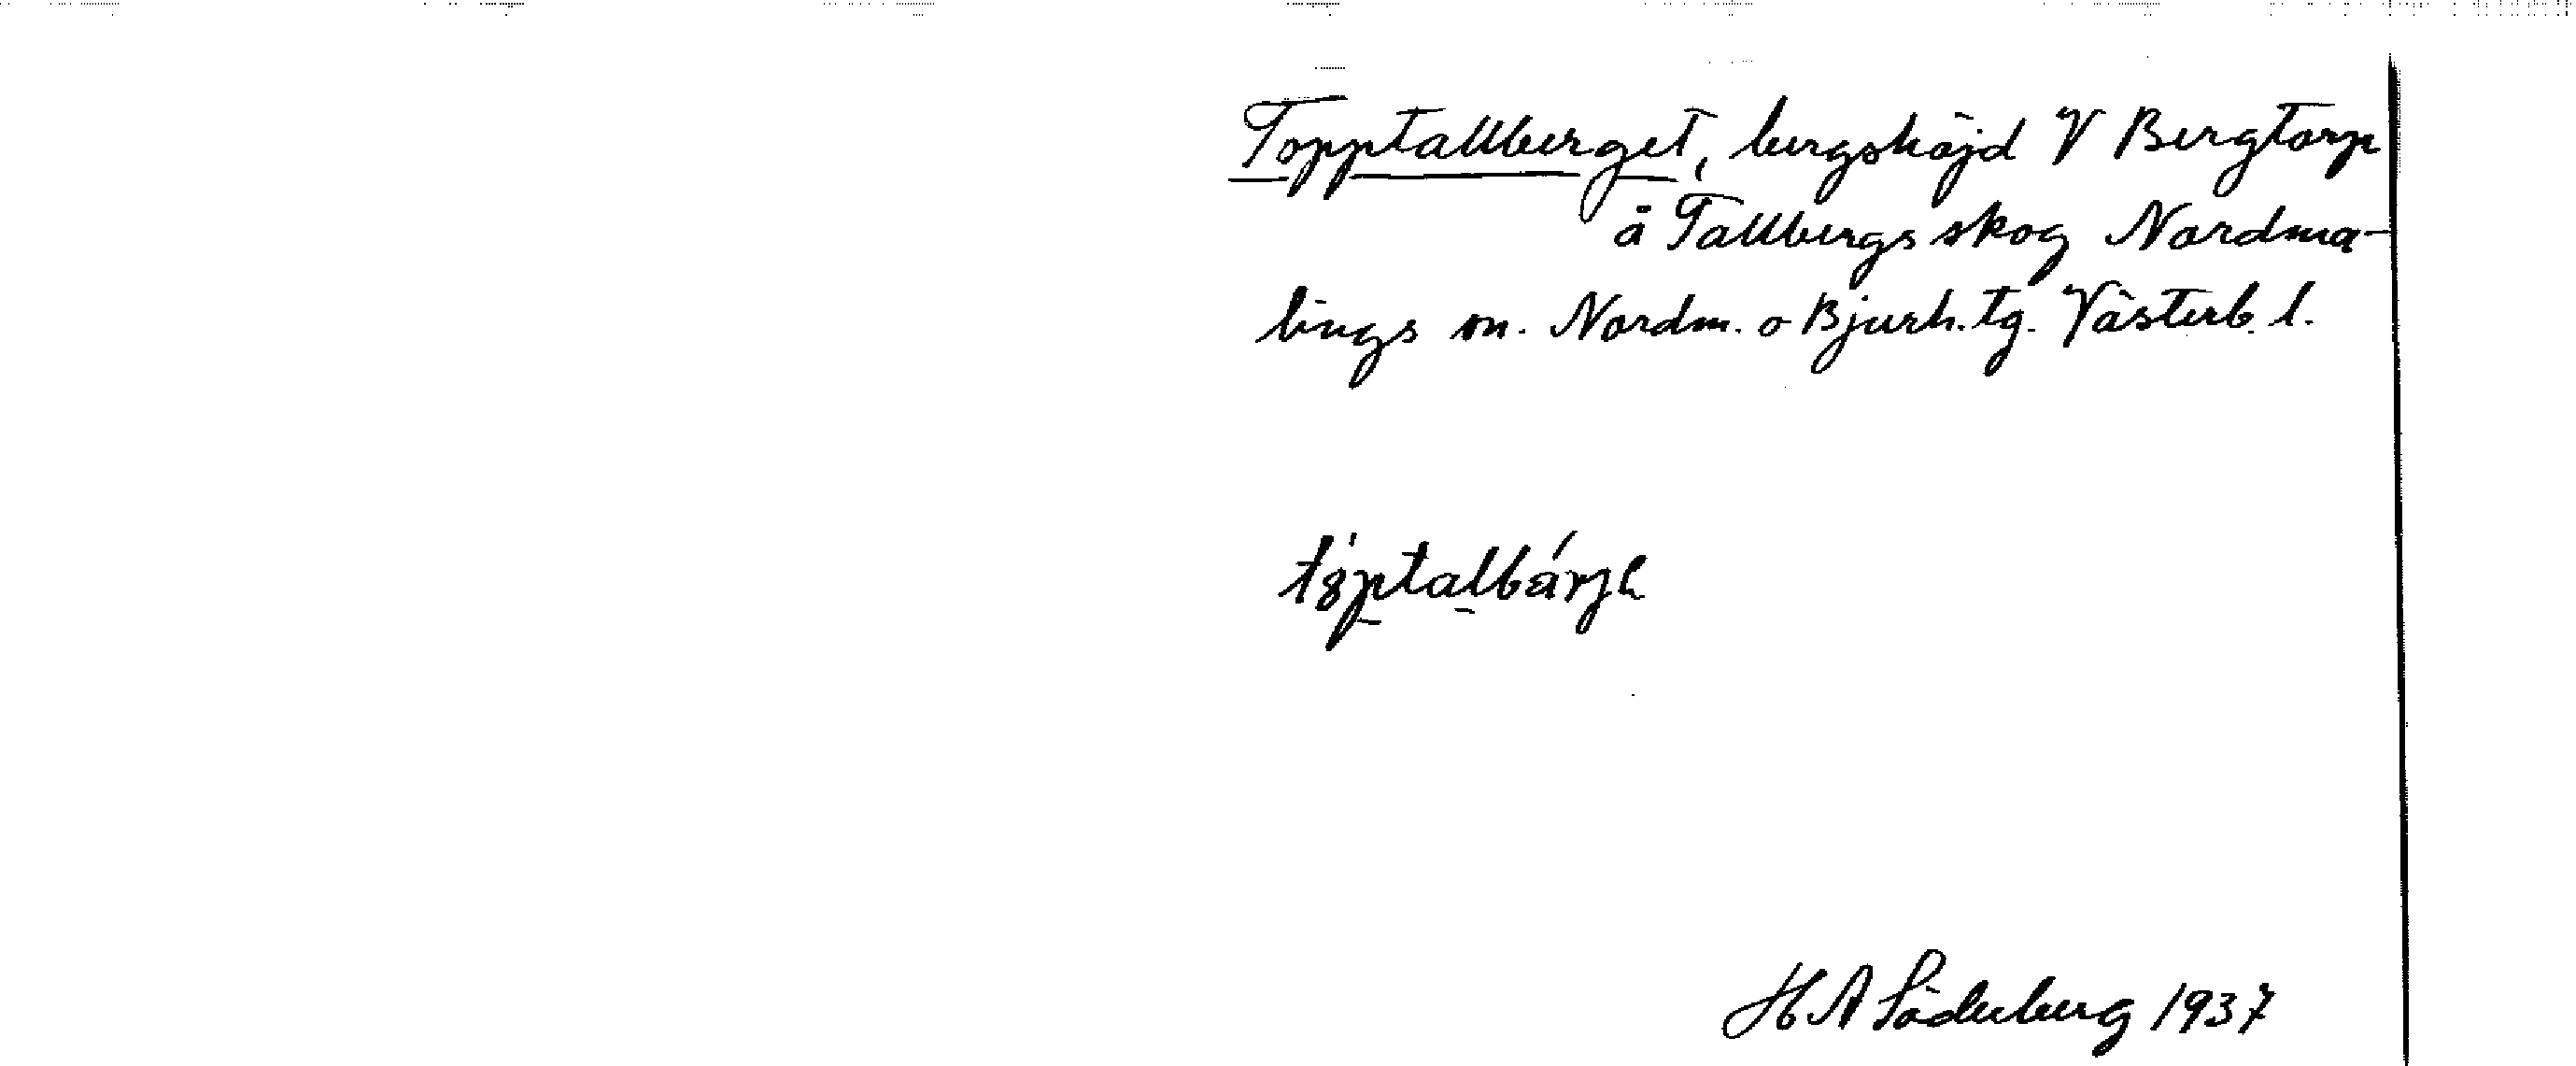 Topptallberget, bergshöjd V Bergtorp
å Tallbergs skog Nordma-
lings sn. Nordm. o Bjurh. tg. Västerb. l.
H A Söderberg 1937